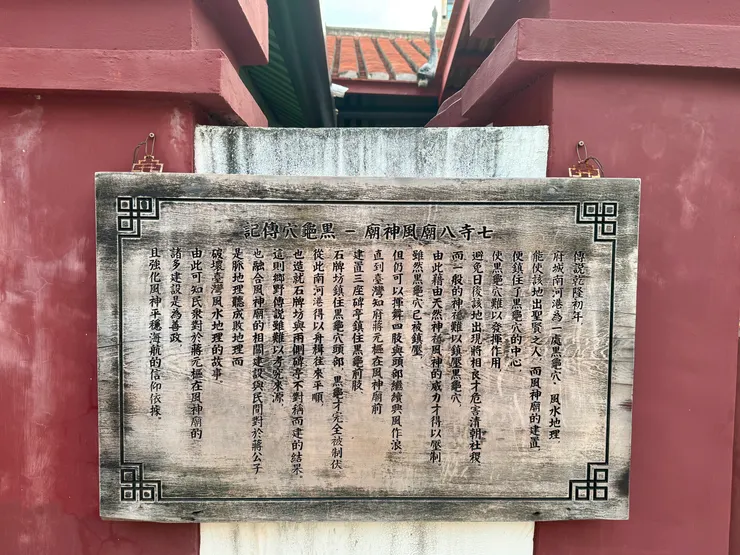 七寺八廟風神廟－黑龜穴傳記
傳說乾隆初年，
府城南河港為一處黑龜穴，風水地理
能使該地出聖賢之人，而風神廟的建置，
便鎮住了黑龜穴的中心，
使黑龜穴難以發揮作用，
避免日後該地出現將相良才危害清朝社稷，
而一般的神祇難以鎮壓黑龜穴，
由此藉由天然神祇風神的威力才得以壓制，
雖然黑龜穴已被鎮壓，
但仍可以揮舞四肢與頭部繼續興風作浪，
直到臺灣知府蔣元樞在風神廟前
建置三座碑亭鎮住黑龜前肢、
石牌坊鎮住黑龜穴頭部，黑龜才完全被制伏，
從此南河港得以舟楫往來平順，
也造就石牌坊與兩側碑亭不對稱而建的結果。
這則鄉野傳說雖難以考究來源，
也融合風神廟的相關建設與民間對於蔣公子
是脈地理聽成敗地理而
破壞臺灣風水地理的故事，
由此可知民眾對於蔣元樞在風神廟的
諸多建設是為善政，
且強化風神平穩海航的信仰依據。